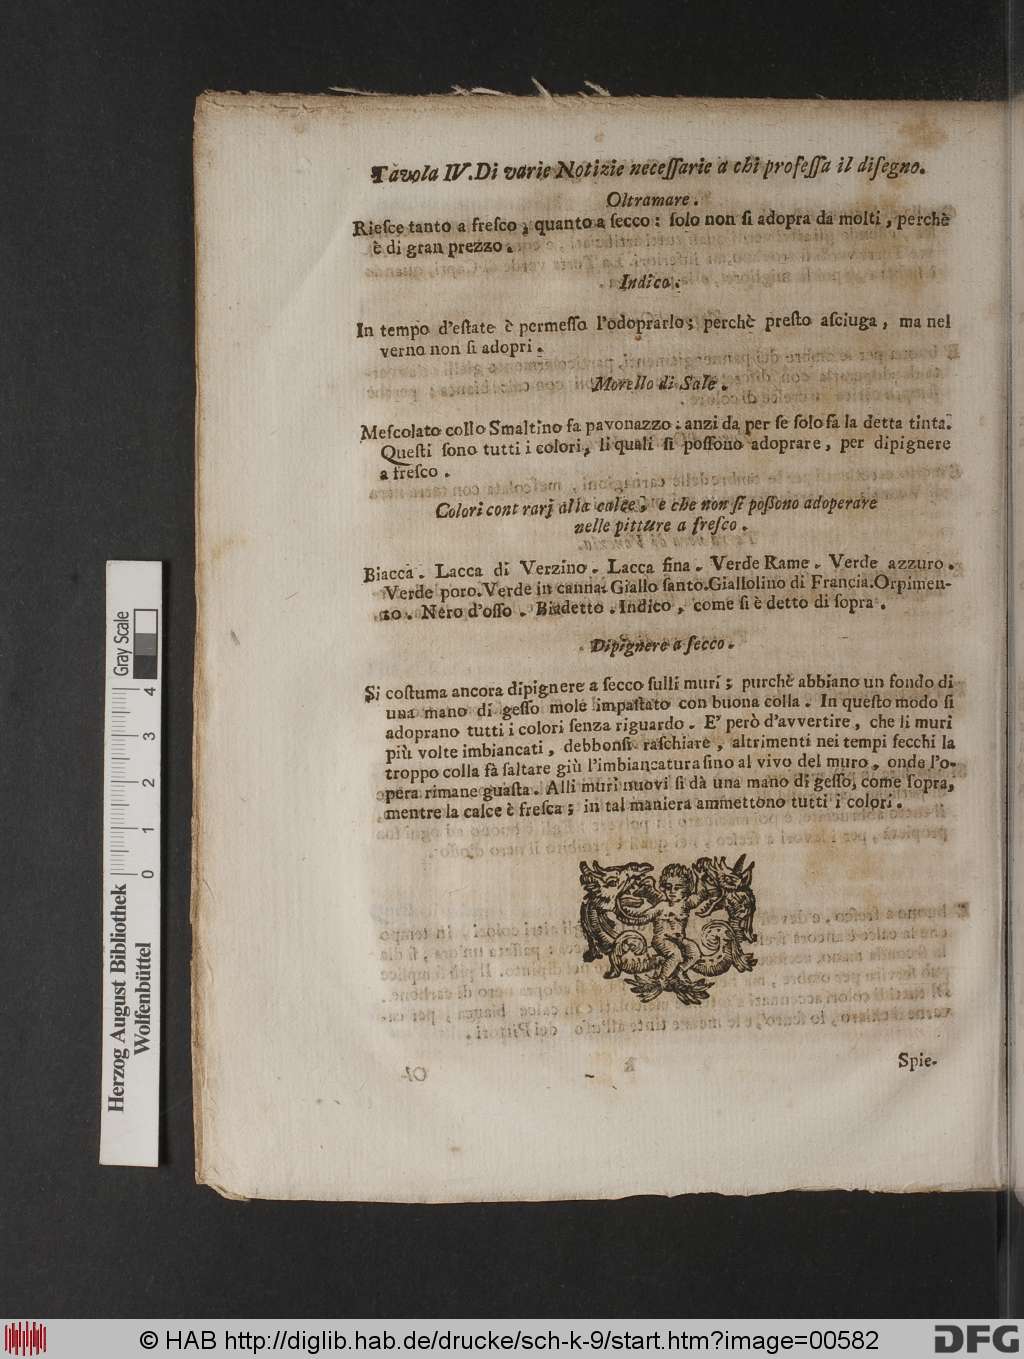 Tavola IV. Di varie Notizie neceſſarie a chi profeſſa il diſegno.
Oltramare.
Rieſce tanto a freſco, quanto a ſecco: ſolo non ſi adopra da molti, perchè
è di gran prezzo.
Indico.
In tempo d'eſtate è permeſſo l'odoprarlo; perchè preſto aſciuga, ma nel
verno non ſi adopri.
Morello di Sale.
Meſcolato collo Smaltino fa pavonazzo: anzi da per ſe ſolo fa la detta tinta.
Queſti ſono tutti i colori, li quali ſi poſſono adoprare, per dipignere
a freſco.
Colori contrarj alla calce, e che non ſi poßono adoperare
nelle pitture a freſco.
Biacca. Lacca di Verzino. Lacca fina. Verde Rame. Verde azzuro.
Verde poro. Verde in canna. Giallo ſanto. Giallolino di Francia. Orpimen-
to. Nero d'oſſo. Biadetto. Indico, come ſi è detto di ſopra.
Dipignere a ſecco.
Si coſtuma ancora dipignere a ſecco ſulli muri; purchè abbiano un fondo di
una mano di geſſo mole impaſtato con buona colla. In queſto modo ſi
adoprano tutti i colori ſenza riguardo. E' però d'avvertire, che li muri
più volte imbiancati, debbonſi raſchiare, altrimenti nei tempi ſecchi la
troppo colla fà ſaltare giù l'imbiancatura ſino al vivo del muro, onde l'o-
pera rimane guaſta. Alli muri nuovi ſi dà una mano di geſſo, come ſopra,
mentre la calce è freſca; in tal maniera ammettono tutti i colori.
Spie-
Herzog August Bibliothek
Wolfenbüttel
Gray Scale
0 1 2 3 4
© HAB http://diglib.hab.de/drucke/sch-k-9/start.htm?image=00582
DFG